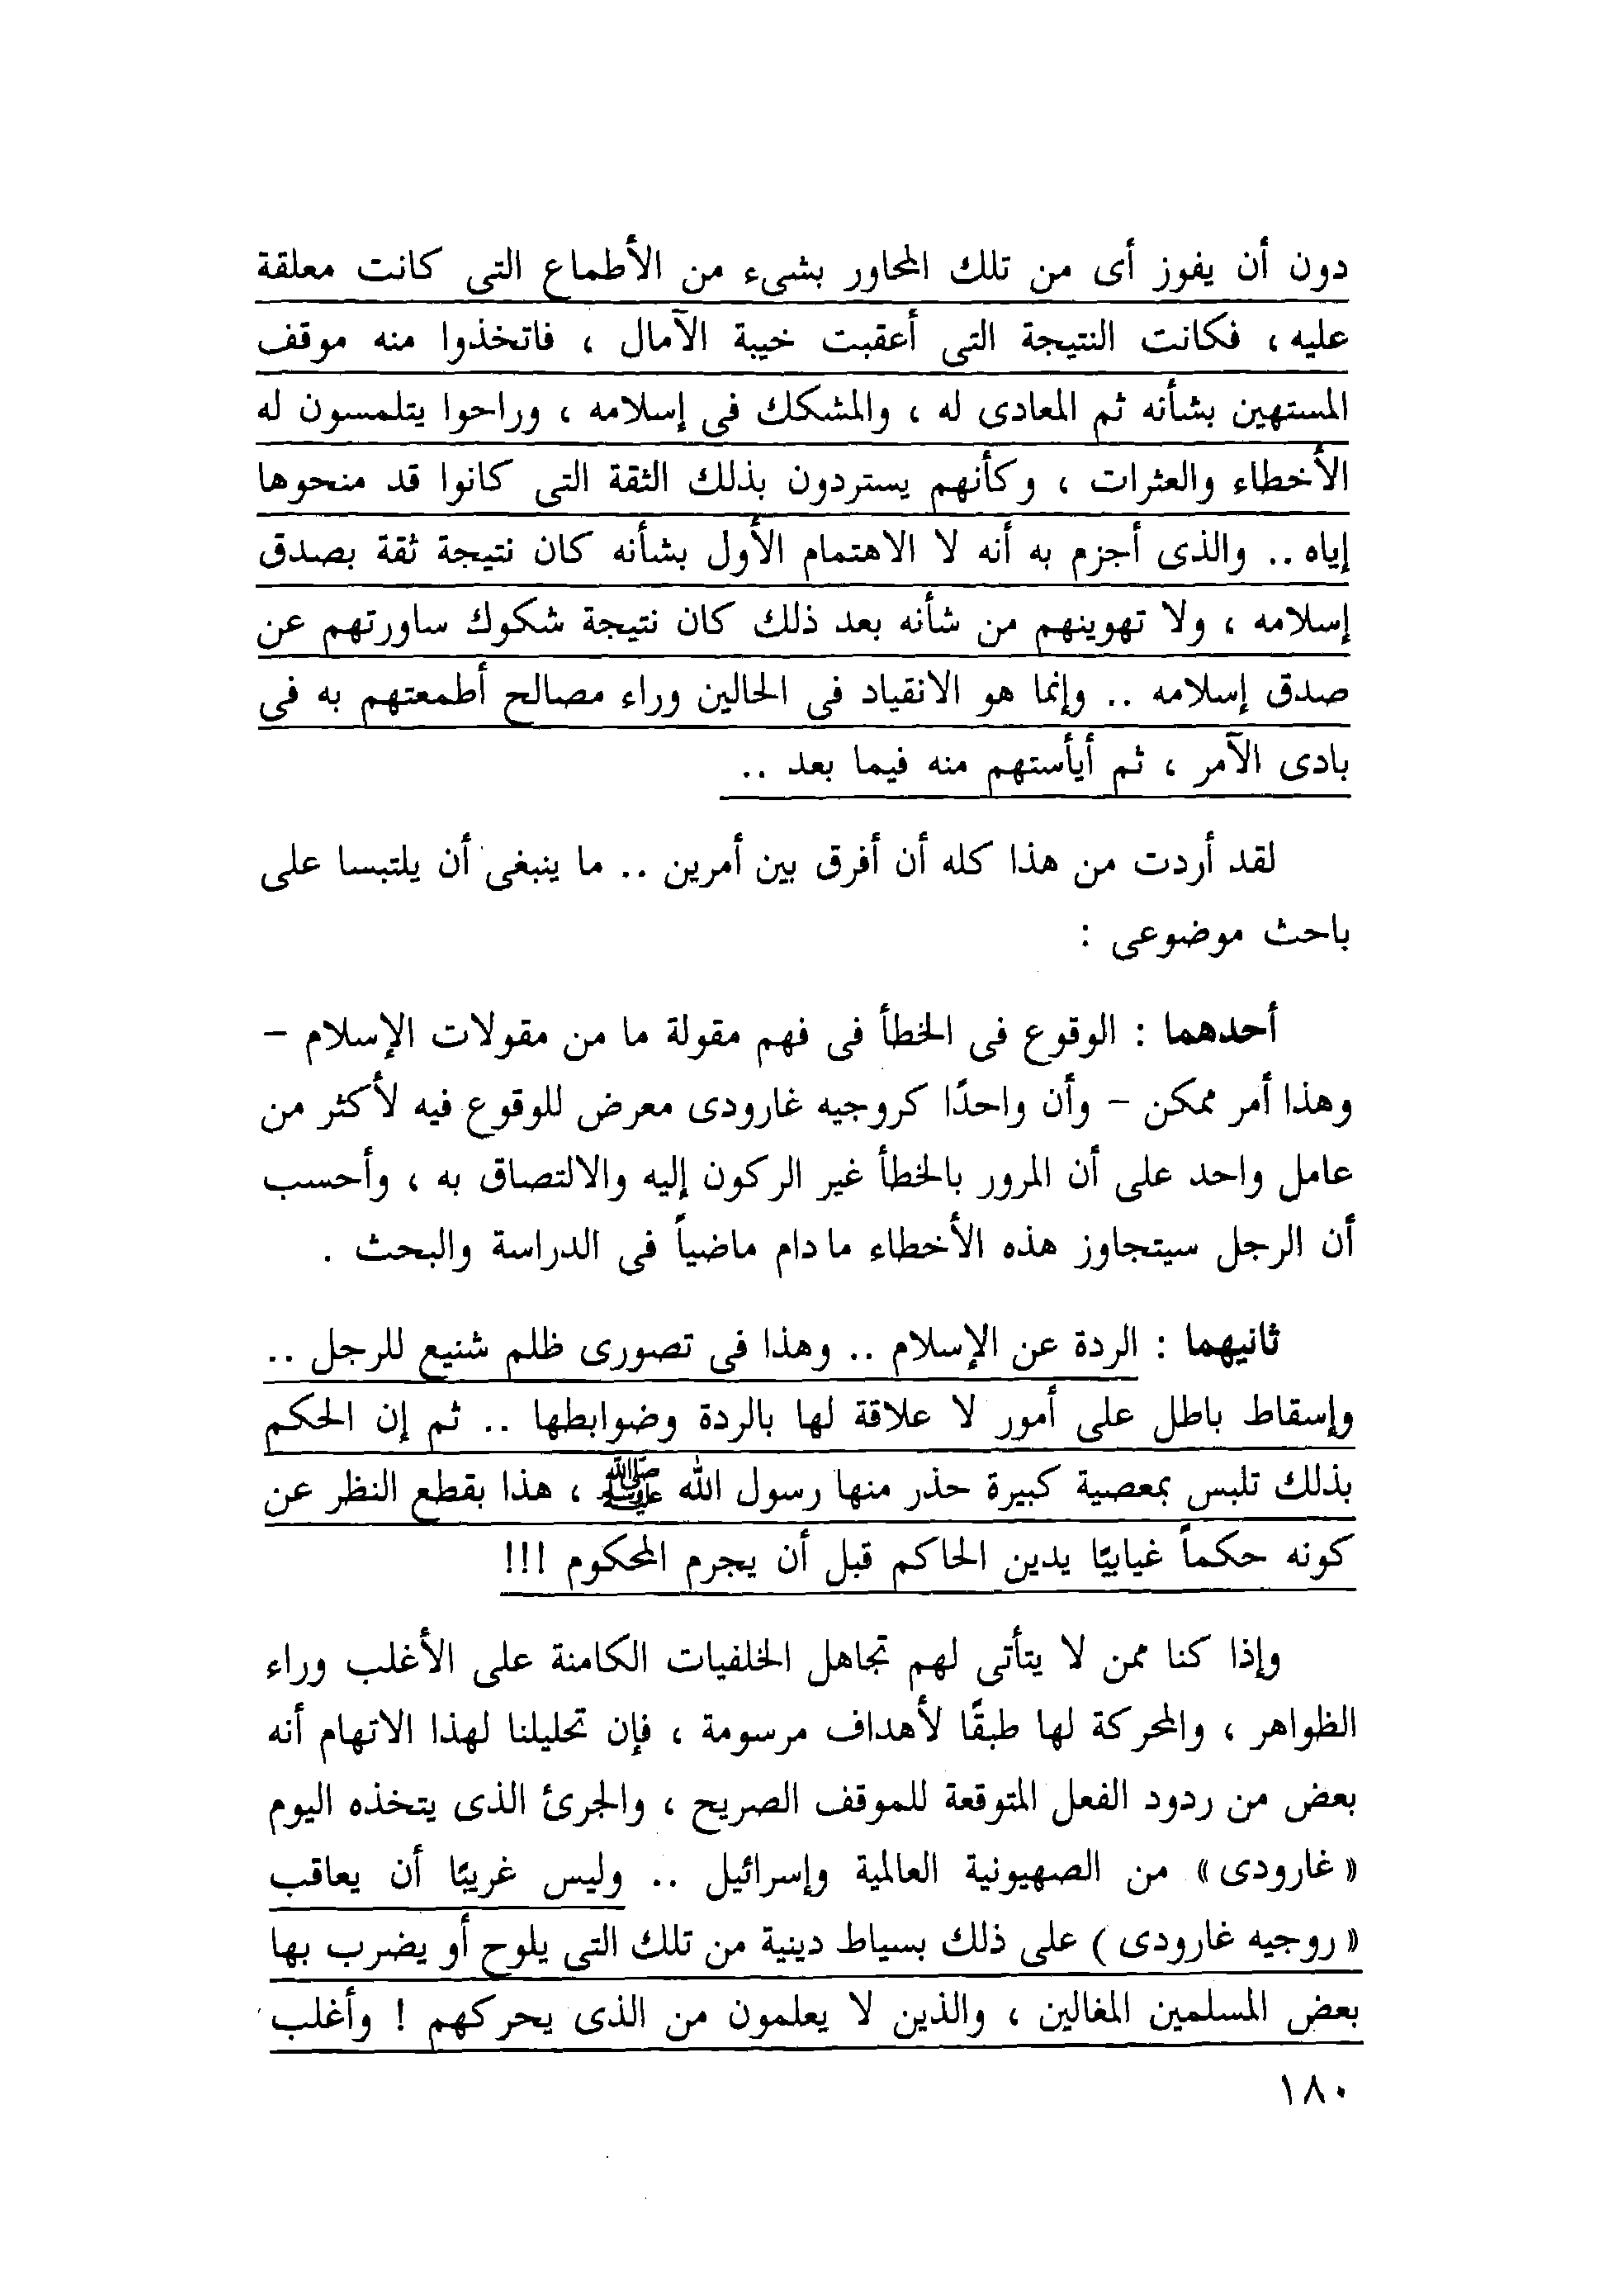 دون أن يفوز أى من تلك المحاور بشىء من الأطماع التى كانت معلقة
عليه ، فكانت النتيجة التى أعقبت خيبة الآمال ، فاتخذوا منه موقف
المستهين بشأنه ثم المعادى له ، والمشكك فى إسلامه ، وراحوا يتلمسون له
الأخطاء والعثرات ، وكأنهم يستردون بذلك الثقة التى كانوا قد منحوها
إياه .. والذى أجزم به أنه لا الاهتمام الأول بشأنه كان نتيجة ثقة بصدق
إسلامه ، ولا تهوينهم من شأنه بعد ذلك كان نتيجة شكوك ساورتهم عن
صدق إسلامه .. وإنما هو الانقياد فى الحالين وراء مصالح أطمعتهم به فى
بادى الآمر ، ثم أيأستهم منه فيما بعد ..
لقد أردت من هذا كله أن أفرق بين أمرين .. ما ينبغى أن يلتبسا على
باحث موضوعى :
أحدهما : الوقوع فى الخطأ فى فهم مقولة ما من مقولات الإسلام –
وهذا أمر ممكن – وأن واحدًا كروجيه غارودى معرض للوقوع فيه لأكثر من
عامل واحد على أن المرور بالخطأ غير الركون إليه والالتصاق به ، وأحسب
أن الرجل سيتجاوز هذه الأخطاء مادام ماضياً فى الدراسة والبحث .
ثانيهما : الردة عن الإسلام .. وهذا فى تصورى ظلم شنيع للرجل ..
وإسقاط باطل على أمور لا علاقة لها بالردة وضوابطها .. ثم إن الحكم
بذلك تلبس بمعصية كبيرة حذر منها رسول الله ﷺ ، هذا بقطع النظر عن
كونه حكماً غيابيًا يدين الحاكم قبل أن يجرم المحكوم !!!
وإذا كنا ممن لا يتأتى لهم تجاهل الخلفيات الكامنة على الأغلب وراء
الظواهر ، والمحركة لها طبقًا لأهداف مرسومة ، فإن تحليلنا لهذا الاتهام أنه
بعض من ردود الفعل المتوقعة للموقف الصريح ، والجرئ الذى يتخذه اليوم
« غارودى » من الصهيونية العالمية وإسرائيل .. وليس غريبًا أن يعاقب
« روجيه غارودى ) على ذلك بسياط دينية من تلك التى يلوح أو يضرب بها
بعض المسلمين المغالين ، والذين لا يعلمون من الذى يحركهم ! وأغلب
١٨٠